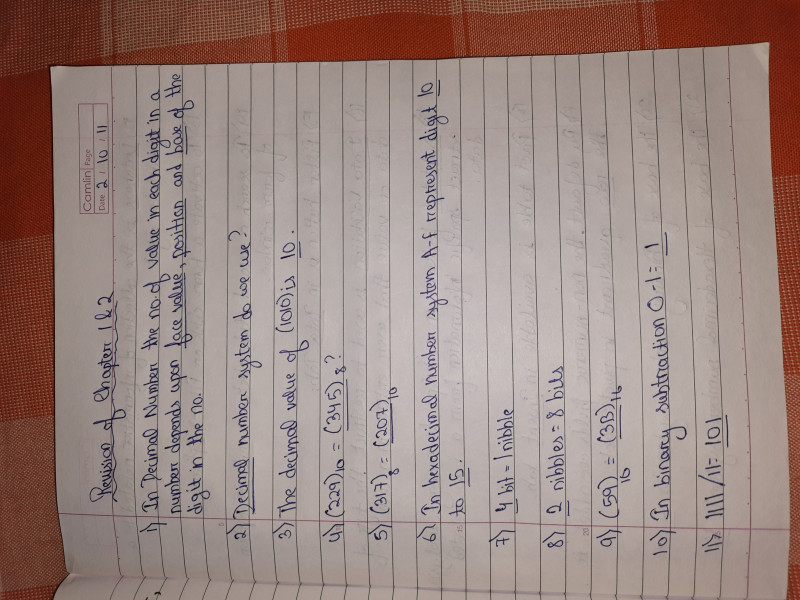 Camlin Page
Date 2 / 10 / 11
Revision of Chapter 1 & 2
1) In Decimal Number the no. of value in each digit in a
number depends upon face value, position and base of the
digit in the no.
2) Decimal number system do we use?
3) The decimal value of (1010) is 10.
4) (229)10 = (345)8?
5) (317)8 = (207)10
6) In hexadecimal number system A-f represent digit 10
to 15.
7) 4 bit = 1 nibble
8) 2 nibbles = 8 bits
9) (59)16 = (3B)16
10) In binary subtraction 0-1 = 1
11) 1111 / 11 = 101